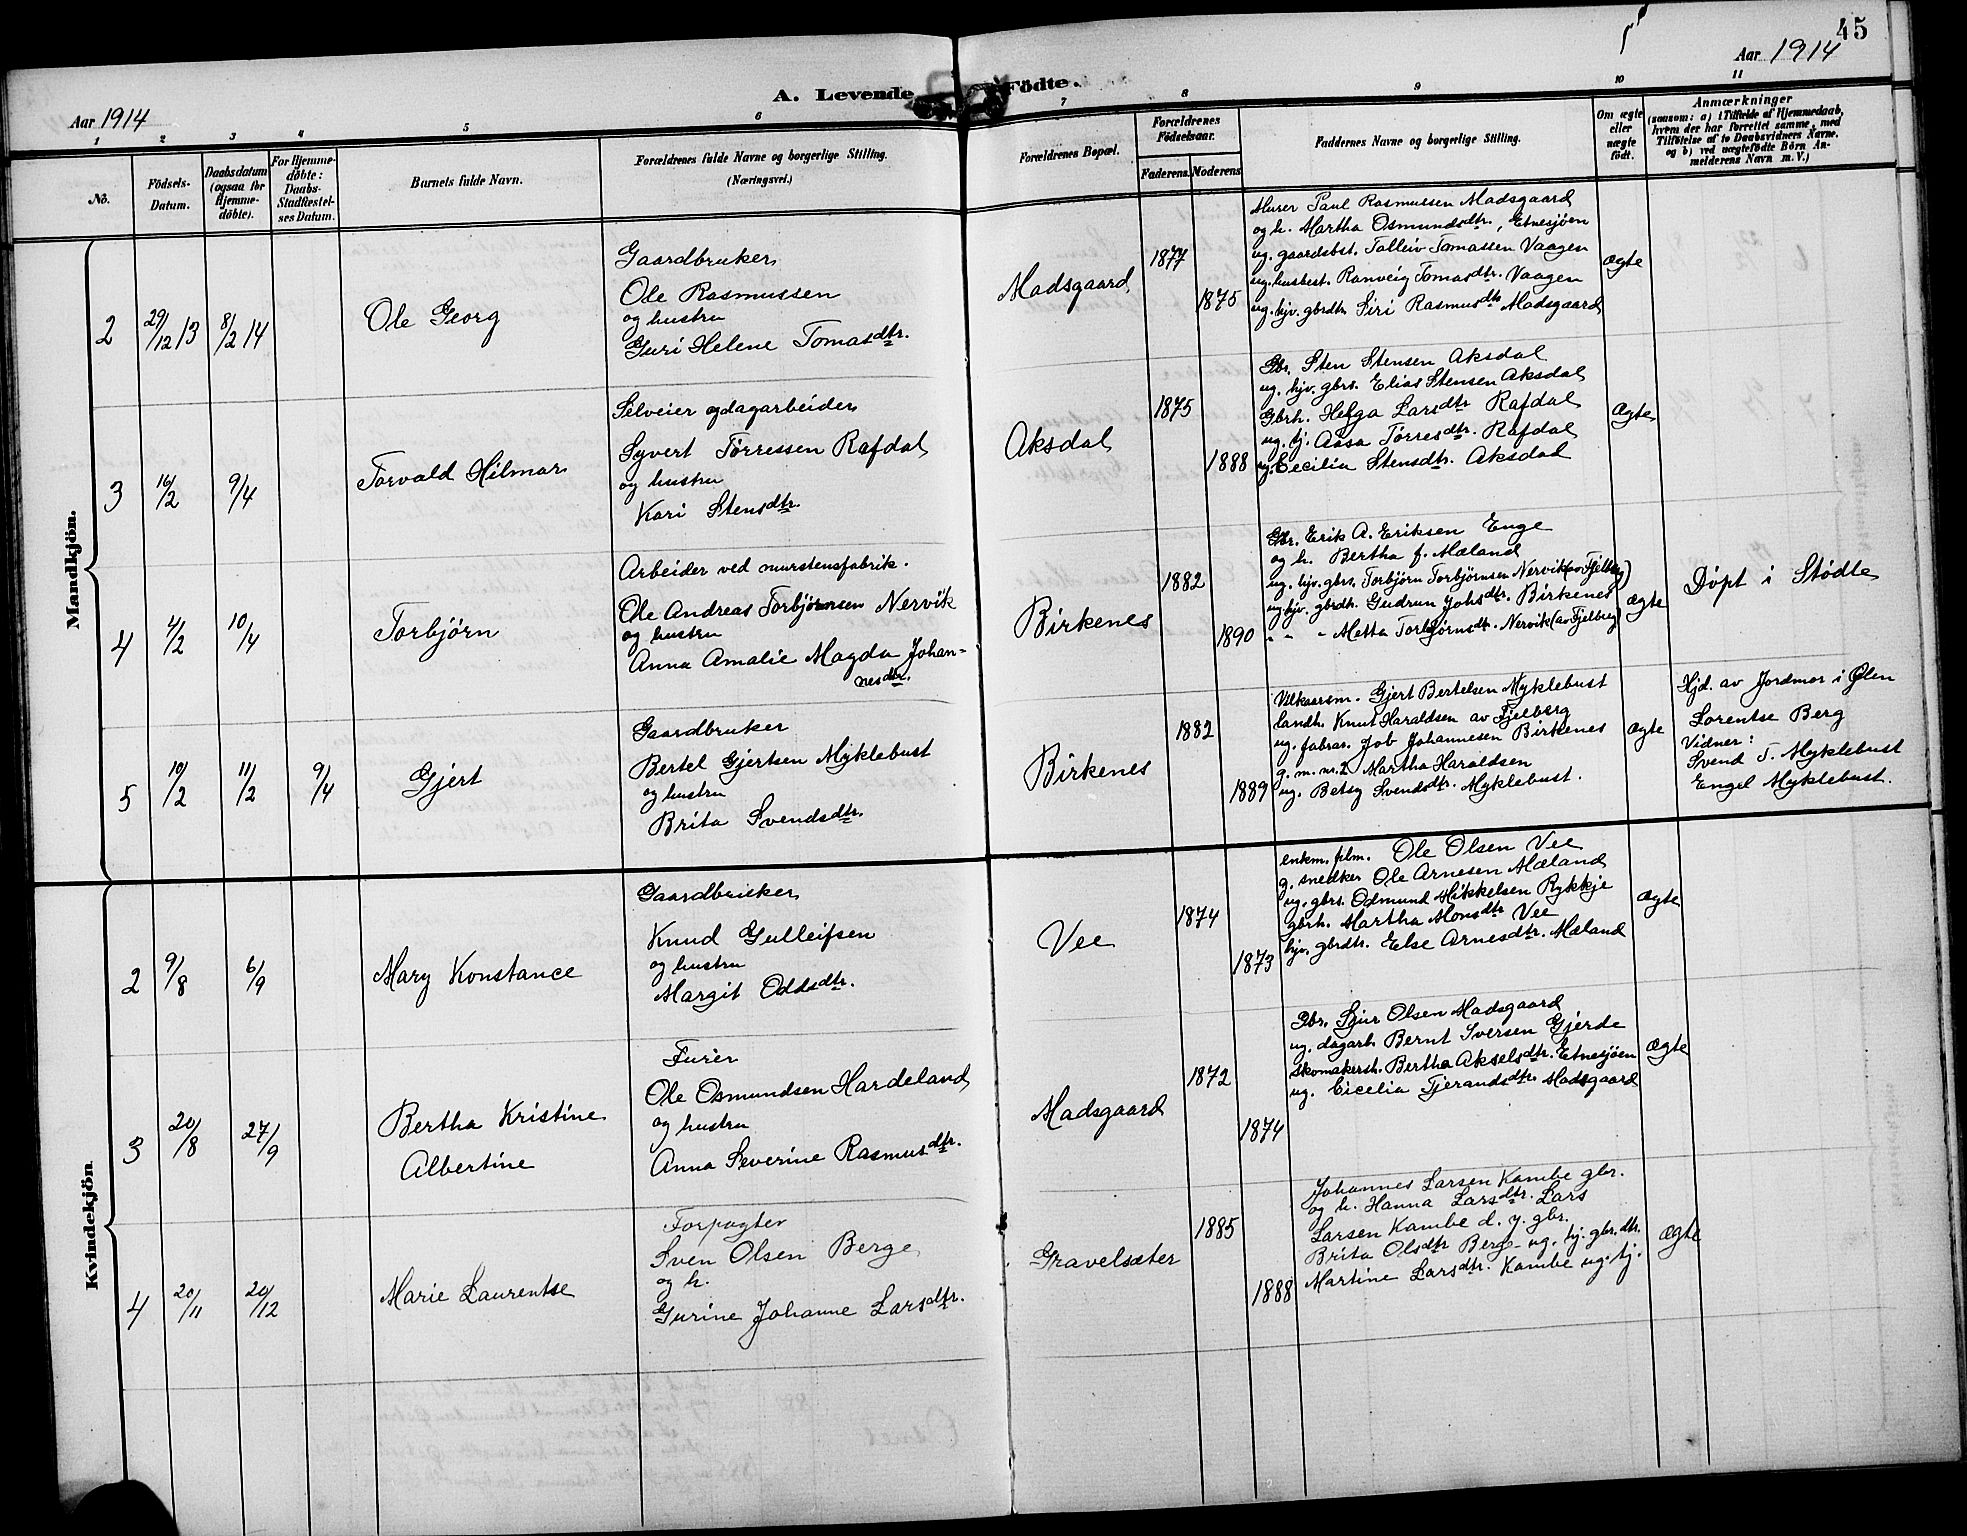 45
Aar 1914
A. Levende Födte.
Aar 1914
1 2 3 4 5 6 7 8 9 10 11
No.
Födsels-
Datum.
Daabsdatum
(ogsaa for
Hjemme-
döbte).
For Hjemme-
döbte:
Daabs-
Stadfæstel-
ses Datum.
Barnets fulde Navn.
Forældrenes fulde Navne og borgerlige Stilling.
(Næringsvei.)
Forældrenes Bopæl.
Forældrenes
Födselsaar.
Faderens. Moderens.
Faddernes Navne og borgerlige Stilling.
Om ægte
eller
uægte
født.
Anmærkninger
(saasom: a) i Tilfælde af Hjemmedaab,
hvem der har forrettet samme, med
Tilföielse af to Daabsvidners Navne,
og b) ved uægtefödte Börn An-
melderens Navn m. V.)
Mandkjön.
2
29/12 13
8/2 14
Ole Georg
Gaardbruker
Ole Rasmussen
og hustru
Guri Helene Tomasdtr.
Madsgaard
1877
1875
Murer Paul Rasmussen Madsgaard
og h. Martha Osmundsdtr., Etnesjøen
ug. gaardsbst. Tolleiv Tomassen Vaagen
ug. husbest. Ranveig Tomasdtr. Vaagen
ug. hjv. gbrdtr. Siri Rasmusdtr Madsgaard
Ægte
3
16/2
9/4
Torvald Hilmar
Selveier og dagarbeider
Syvert Tørressen Rafdal
og hustru
Kari Stensdtr.
Aksdal
1875
1888
Gbr. Sten Stensen Aksdal
ug. hjv. gbrs. Elias Stensen Aksdal
Gbrh. Helga Larsdtr Rafdal
ug. tj. Aasa Tørresdtr. Rafdal
ug. Cecilia Stensdtr. Aksdal
Ægte
4
4/2
10/4
Torbjørn
Arbeider ved murstensfabrik.
Ole Andreas Torbjørnsen Nervik
og hustru
Anna Amalie Magda Johan-
nesdtr.
Birkenes
1882
1890
Gbr. Erik A. Eriksen Enge
og h. Bertha f. Mæland
ug. hjv. gbrs. Torbjørn Torbjørnsen Nervik (av Fjelberg)
ug. hjv. gbrdtr. Gudrun Johsdtr. Birkenes
" " " Metta Torbjørnsdtr. Nervik (av Fjelberg)
Ægte
Døpt i Stødle
5
10/2
11/2
9/4
Gjert
Gaardbruker
Bertel Gjertsen Myklebust
og hustru
Brita Svendsdtr.
Birkenes
1882
1889
Vilkaarsm. Gjert Bertelsen Myklebust
landh. Knut Haraldsen av Fjelberg
ug. fabrar. Job Johannesen Birkenes
g. m. nr. 2 Martha Haraldsen
ug. Betsy Svendsdtr. Myklebust.
Ægte
Hjd. av Jordmor i Ølen
Lorentse Berg
Vidner:
Svend T. Myklebust
Engel Myklebust.
Kvindekjön
2
9/8
6/9
Mary Konstance
Gaardbruker
Knud Gulleifsen
og hustru
Margit Oddsdtr.
Vee
1874
1873
enkm. Ole Olsen Vee
g. snedker Ole Arnesen Mæland
ug. gbrs. Odmund Mikkelsen Rykkje
gbrh. Martha Monsdtr Vee
hjv. gbrdtr. Else Arnesdtr. Mæland
Ægte
3
20/8
27/9
Bertha Kristine
Albertine
Furér
Ole Osmundsen Hardeland
og hustru
Anna Severine Rasmusdtr.
Madsgaard
1872
1874
Gbr. Sjur Olsen Madsgaard
ug. dagarb. Bernt Iversen Gjerde
Skomakersh. Bertha Akselsdtr. Etnesjøen
ug. Cicelia Tjerandsdtr. Madsgaard
Ægte
4
20/11
20/12
Marie Laurentse
Forpagter
Sven Olsen Berge
og h.
Gurine Johanne Larsdtr.
Gravelsæter
1885
1888
Johannes Larsen Kambe gbr.
og h. Hanna Larsdtr. Lars
Larsen Kambe d. y. gbr.
Brita Olsdtr Berge ug. hj. gbr. dtr.
Martine Larsdtr. Kambe ug. tj.
Ægte